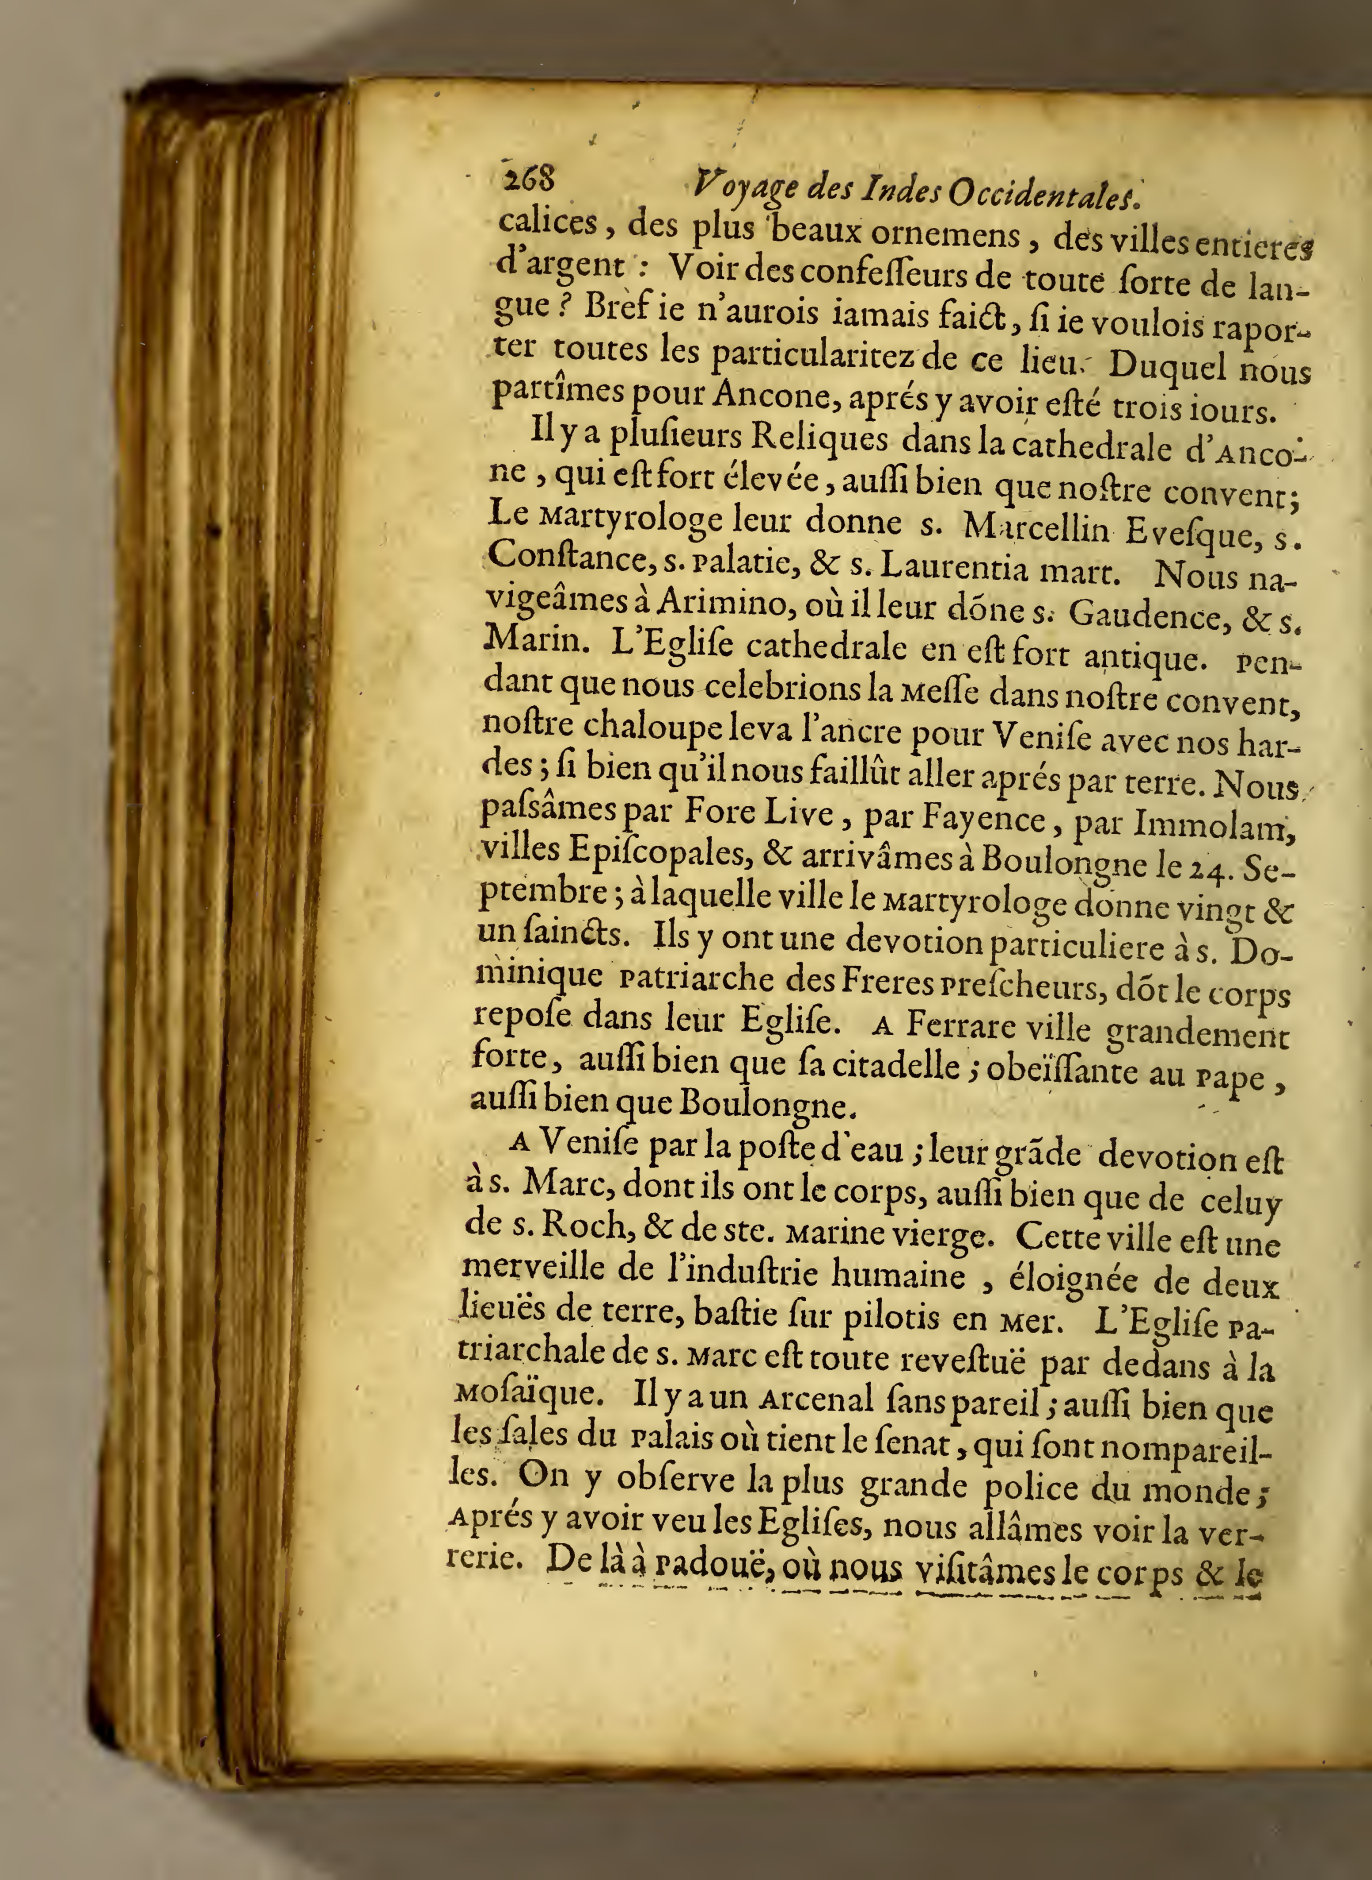 268 Voyage des Indes Occidentales.
calices, des plus beaux ornemens, des villes entieres
d'argent : Voir des confeſſeurs de toute ſorte de lan-
gue ? Bref ie n'aurois iamais faict, ſi ie voulois rapor-
ter toutes les particularitez de ce lieu. Duquel nous
partîmes pour Ancone, aprés y avoir eſté trois iours.
Il y a pluſieurs Reliques dans la cathedrale d'Anco-
ne, qui eſt fort élevée, auſſi bien que noſtre convent;
Le Martyrologe leur donne s. Marcellin Eveſque, s.
Conſtance, s. Palatie, & s. Laurentia mart. Nous na-
vigeâmes à Arimino, où il leur dóne s. Gaudence, & s.
Marin. L'Egliſe cathedrale en eſt fort antique. Pen-
dant que nous celebrions la Meſſe dans noſtre convent,
noſtre chaloupe leva l'ancre pour Veniſe avec nos har-
des ; ſi bien qu'il nous faillût aller aprés par terre. Nous
paſsâmes par Fore Live, par Fayence, par Immolam,
villes Epiſcopales, & arrivâmes à Boulongne le 24. Se-
ptembre ; à laquelle ville le Martyrologe donne vingt &
un ſaincts. Ils y ont une devotion particuliere à s. Do-
minique Patriarche des Freres Preſcheurs, dõt le corps
repoſe dans leur Egliſe. A Ferrare ville grandement
forte, auſſi bien que ſa citadelle ; obeïſſante au Pape,
auſſi bien que Boulongne.
A Veniſe par la poſte d'eau ; leur grãde devotion eſt
à s. Marc, dont ils ont le corps, auſſi bien que de celuy
de s. Roch, & de ste. Marine vierge. Cette ville eſt une
merveille de l'induſtrie humaine, éloignée de deux
lieuës de terre, baſtie ſur pilotis en Mer. L'Egliſe Pa-
triarchale de s. Marc eſt toute reveſtuë par dedans à la
Moſaïque. Il y a un Arcenal ſans pareil ; auſſi bien que
les ſales du Palais où tient le ſenat, qui ſont nompareil-
les. On y obſerve la plus grande police du monde ;
Aprés y avoir veu les Egliſes, nous allâmes voir la ver-
rerie. De là à Padouë, où nous viſitâmes le corps & le